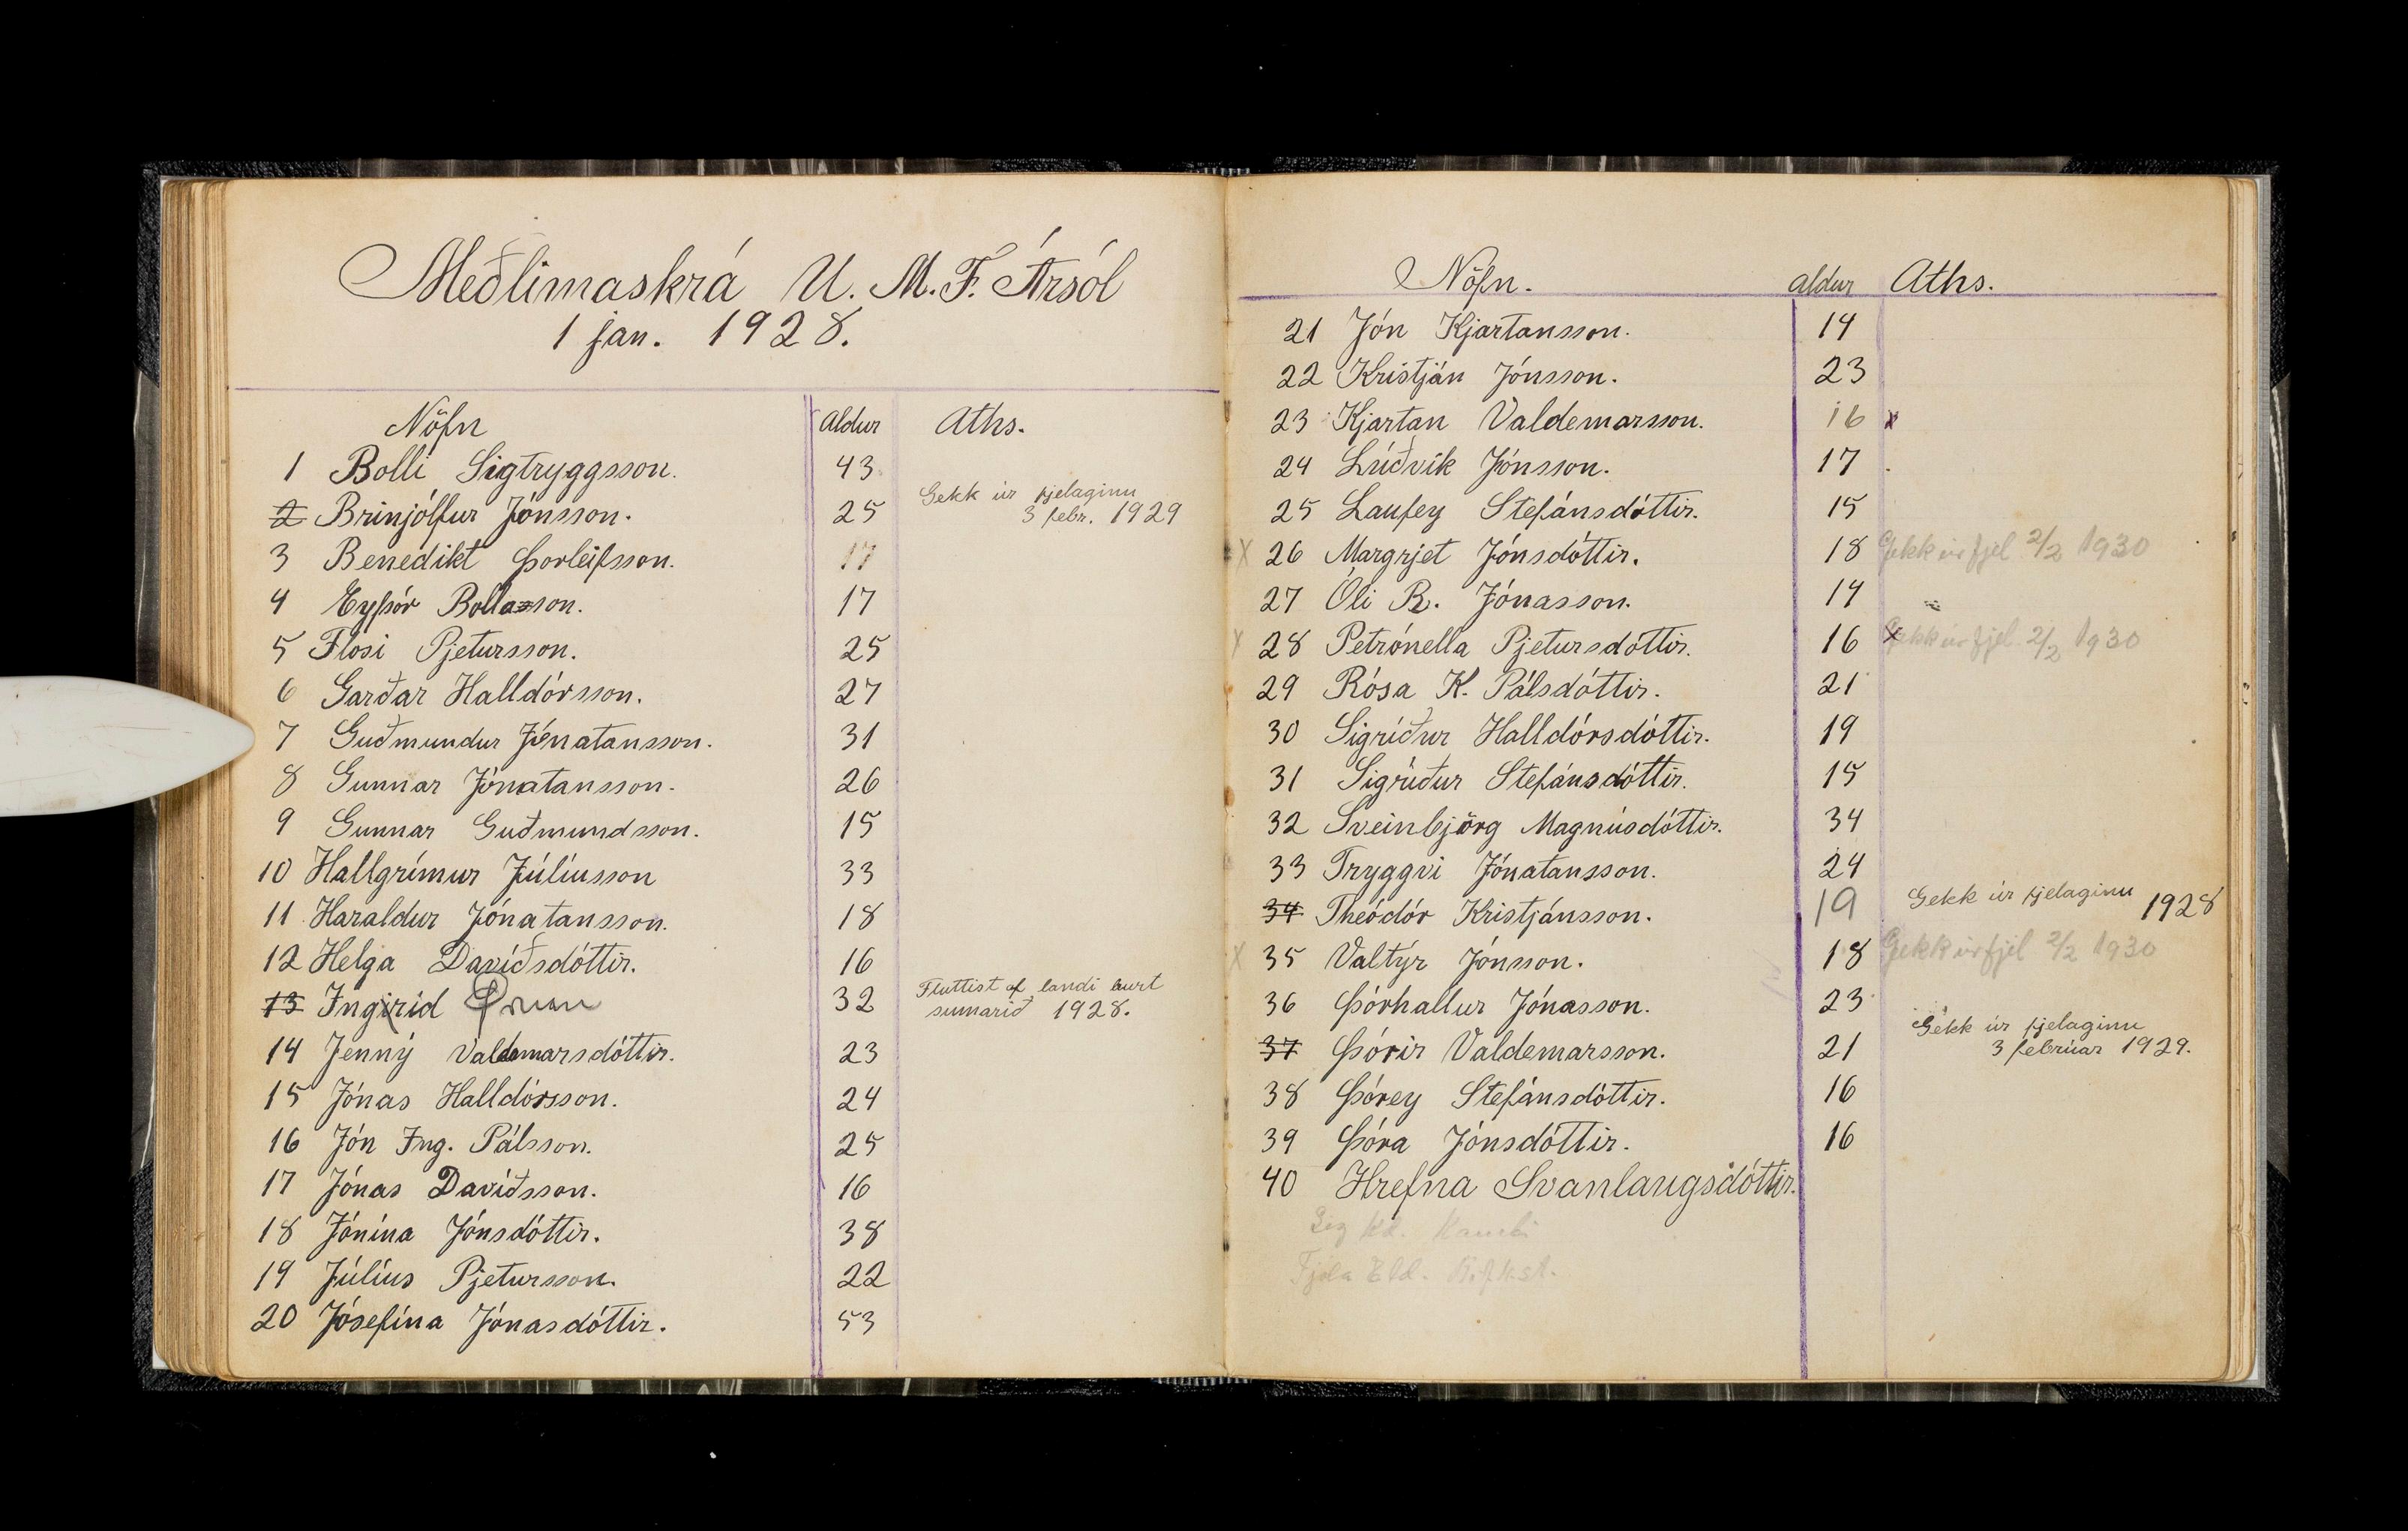 Meðlimaskrá U. M. F. Ársól
1 jan. 1928.
Nöfn Aldur Aths.
1 Bolli Sigtryggsson. 43
2 Brinjólfur Jónsson. 25 Gekk úr fjelaginu
3 febr. 1929
3 Benedikt Þorleifsson. 17
4 Eyþór Bollason. 17
5 Flosi Pjetursson. 25
6 Garðar Halldórsson. 27
7 Guðmundur Jónatansson. 31
8 Gunnar Jónatansson. 26
9 Gunnar Guðmundsson. 15
10 Hallgrímur Júlíusson 33
11 Haraldur Jónatansson. 18
12 Helga Davíðsdóttir. 16
13 Ingirid 32 Fluttist af landi burt
sumarið 1928.
14 Jenný Valdemarsdóttir. 23
15 Jónas Halldórsson. 24
16 Jón Ing. Pálsson. 25
17 Jónas Davíðsson. 16
18 Jónína Jónsdóttir. 38
19 Júlíus Pjetursson. 22
20 Jósefína Jónasdóttir. 53
Nöfn. aldur Aths.
21 Jón Kjartansson. 14
22 Kristján Jónsson. 23
23 Kjartan Valdemarsson. 16 x
24 Lúðvík Jónsson. 17
25 Laufey Stefánsdóttir. 15
X 26 Margrjet Jónsdóttir. 18 Gekk úr fjel 2/2 1930
27 Óli R. Jónasson. 14
X 28 Petrónella Pjetursdóttir. 16 Gekk úr fjel 2/2 1930
29 Rósa K. Pálsdóttir. 21
30 Sigríður Halldórsdóttir. 19
31 Sigríður Stefánsdóttir. 15
32 Sveinbjörg Magnúsdóttir. 34
33 Tryggvi Jónatansson. 24
34 Theódór Kristjánsson. 19 Gekk úr fjelaginu 1928
X 35 Valtýr Jónsson. 18 Gekk úr fjel 2/2 1930
36 Þórhallur Jónasson. 23
37 Þórir Valdemarsson. 21 Gekk úr fjelaginu
3 febrúar 1929.
38 Þórey Stefánsdóttir. 16
39 Þóra Jónsdóttir. 16
40 Hrefna Svanlaugsdóttir.